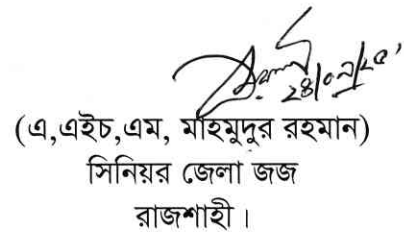 ২৪/০৯/২৫
(এ,এইচ,এম, মাহমুদুর রহমান)
সিনিয়র জেলা জজ
রাজশাহী।